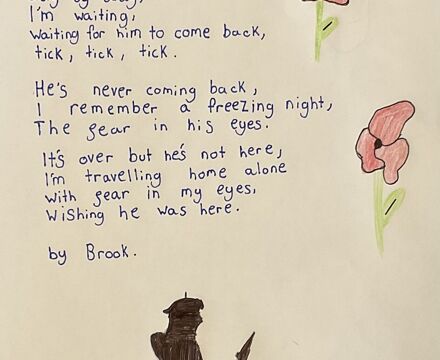 I'm waiting,
waiting for him to come back,
tick, tick, tick.
He's never coming back,
I remember a freezing night,
The fear in his eyes.
It's over but he's not here,
I'm travelling home alone
with fear in my eyes,
Wishing he was here.
by Brook.